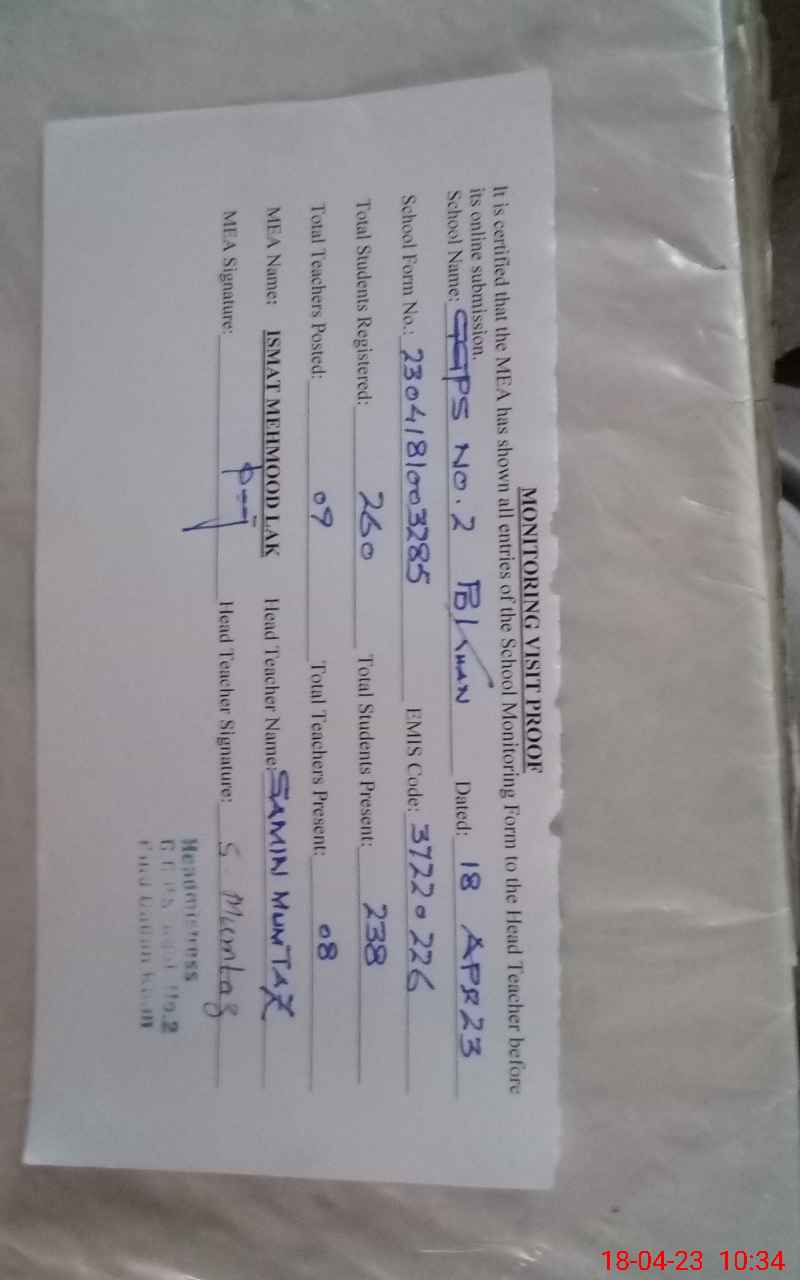 MONITORING VISIT PROOF
It is certified that the MEA has shown all entries of the School Monitoring Form to the Head Teacher before
its online submission.
School Name: GGPS NO. 2 PD KHAN Dated: 18 APR 23
School Form No.: 2304181003285 EMIS Code: 37220226
Total Students Registered: 260 Total Students Present: 238
Total Teachers Posted: 09 Total Teachers Present: 08
MEA Name: ISMAT MEHMOOD LAK Head Teacher Name: SAMIN MUMTAZ
MEA Signature: Head Teacher Signature: S. Mumtaz
Headmistress
No.2
Pind Dadan Khan
18-04-23 10:34